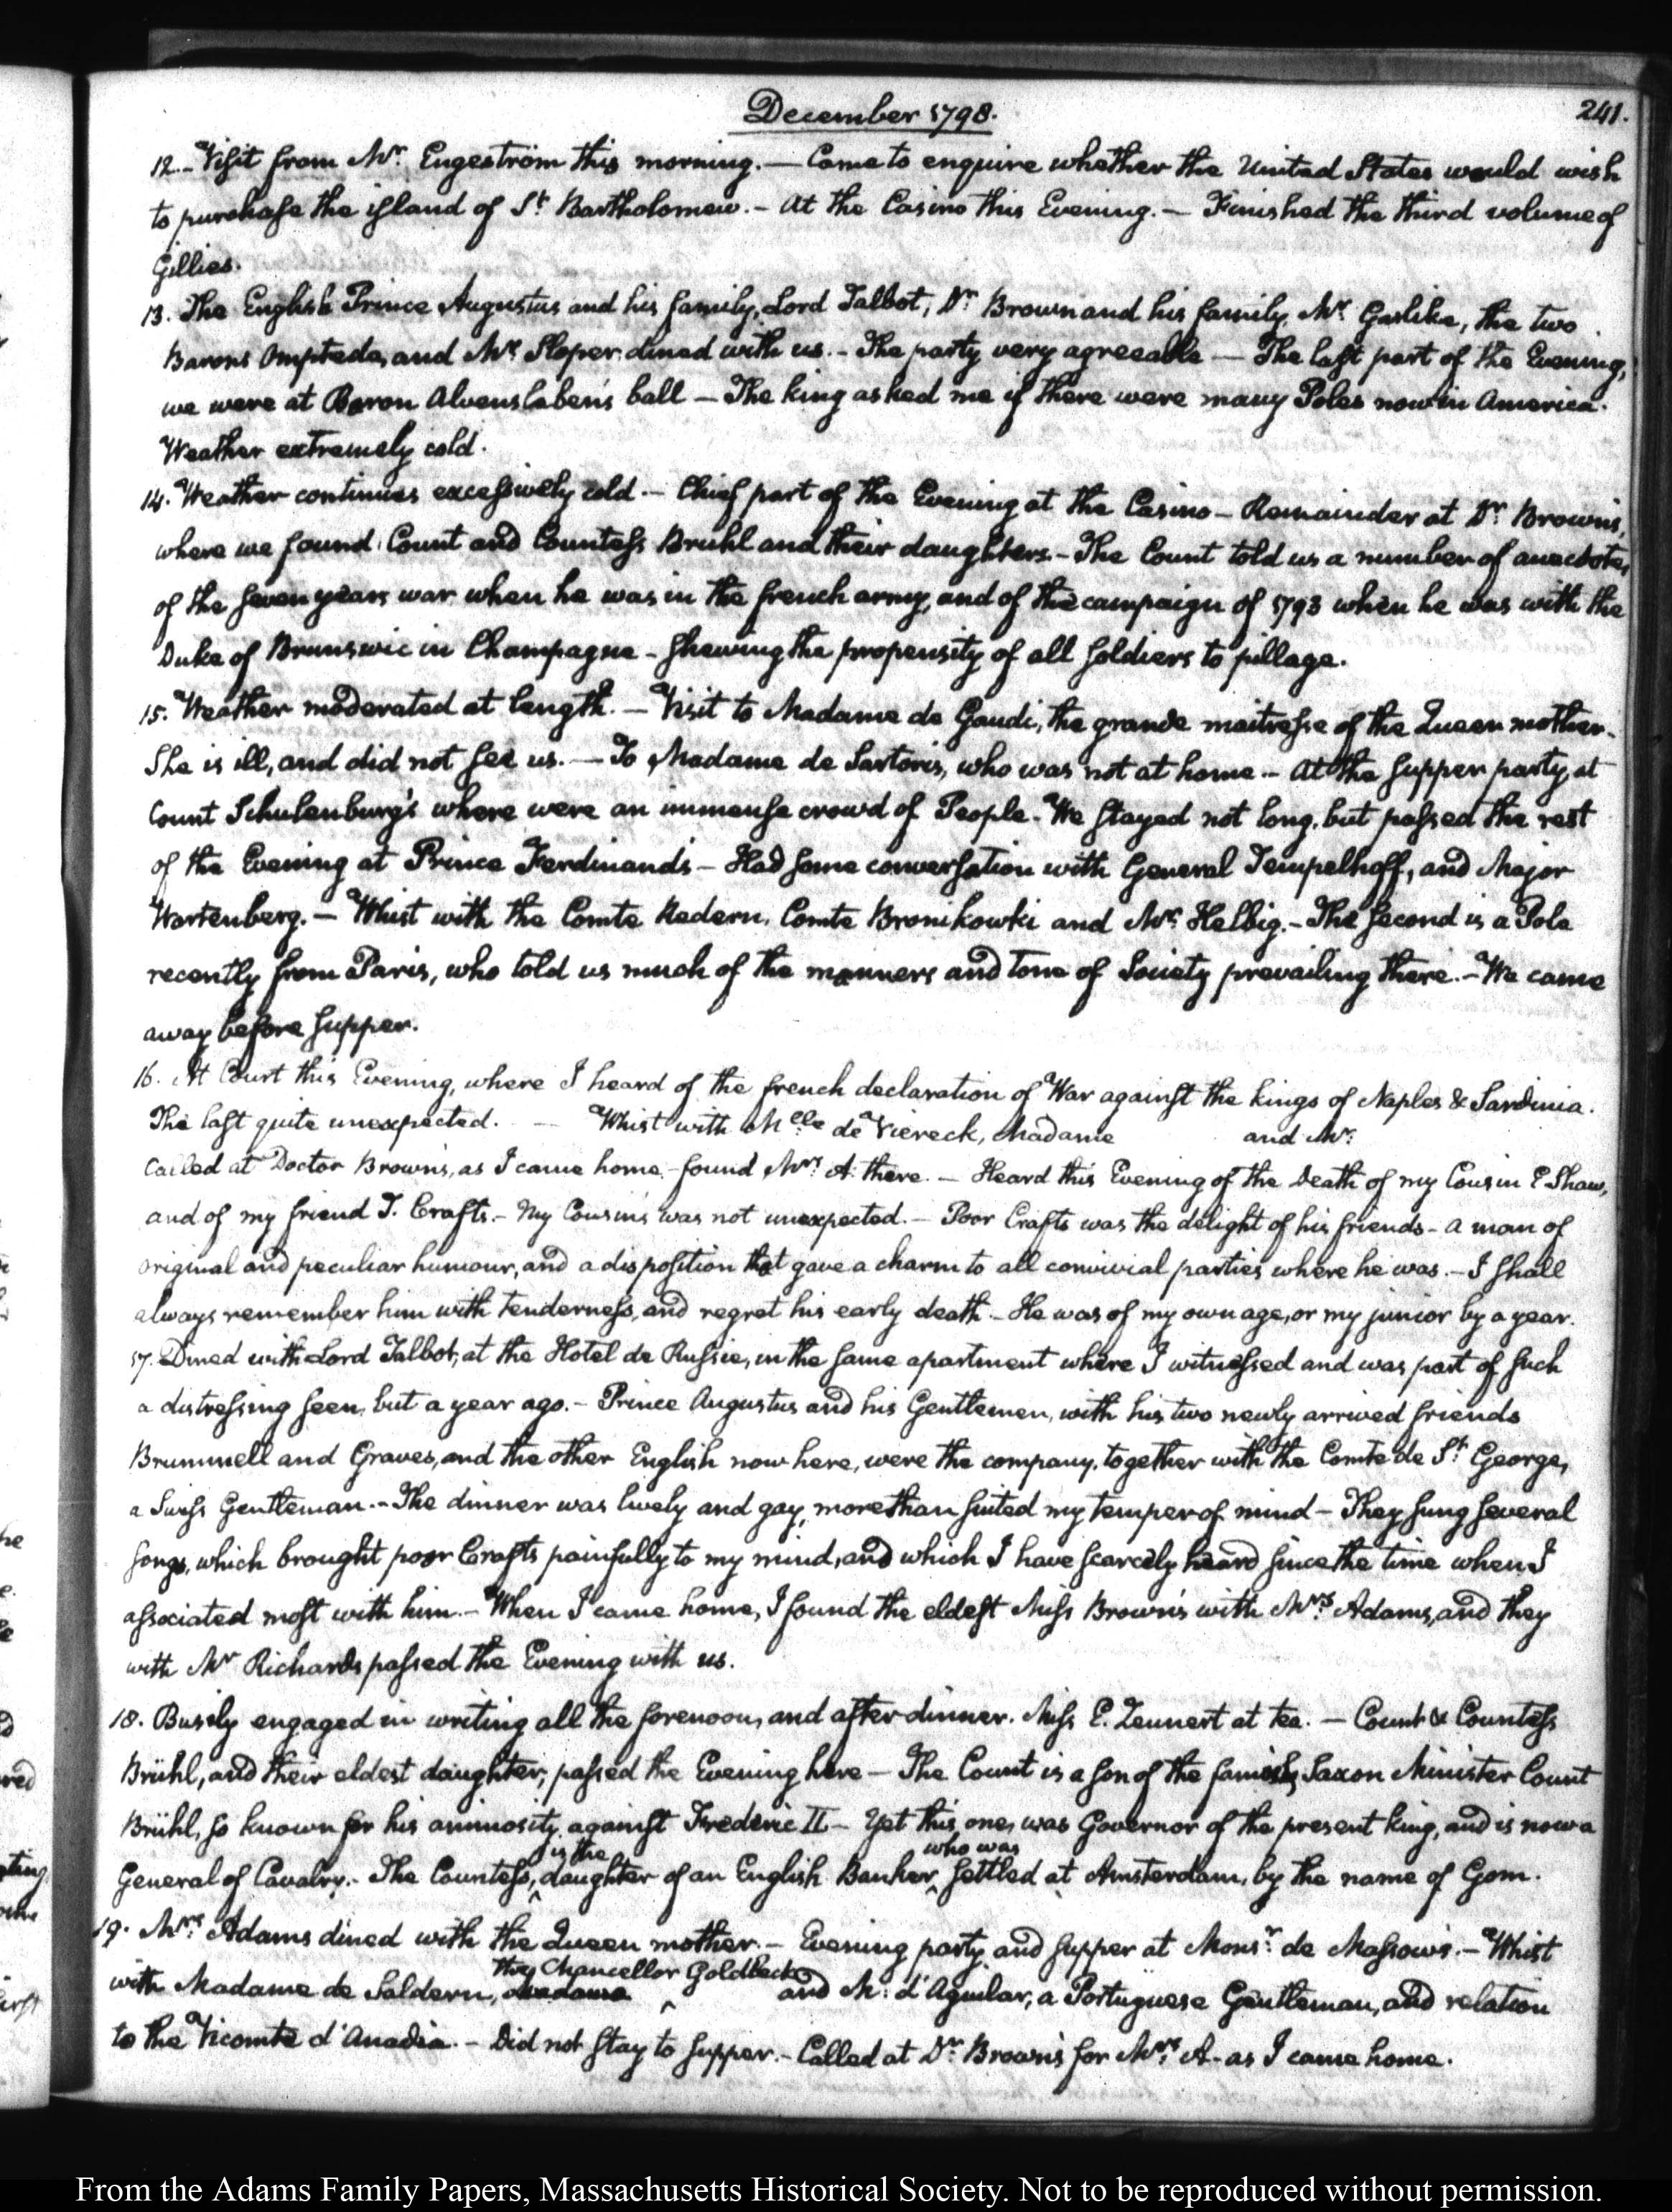 December 1798.
241.
12.- Visit from Mr. Engeström this morning. — Came to enquire whether the United States would wish
to purchase the island of St. Bartholomew. - At the Casino this Evening. — Finished the third volume of
Gillies.
13. The English Prince Augustus and his family, Lord Talbot, Dr. Brown and his family, Mr. Garlike, the two
Barons Ompteda, and Mr. Sloper dined with us. - The party very agreeable — The last part of the Evening,
we were at Baron Alvensleben's ball — The king asked me if there were many Poles now in America.
Weather extremely cold.
14. Weather continues excessively cold. — Chief part of the Evening at the Casino — Remainder at Dr. Brown's,
where we found Count and Countess Brühl and their daughters. - The Count told us a number of anecdotes,
of the seven years war when he was in the french army, and of the campaign of 1793 when he was with the
Duke of Brunswic in Champagne - shewing the propensity of all soldiers to pillage.
15. Weather moderated at length. — Visit to Madame de Gaudi, the grande maitresse of the Queen mother.
She is ill, and did not see us. — To Madame de Sartoris, who was not at home. - At the supper party at
Count Schulenburg's where were an immense crowd of People. We stayed not long, but passed the rest
of the Evening at Prince Ferdinand's — Had some conversation with General Tempelhoff, and Major
Wartenberg. — Whist with the Comte Redern, Comte Bronikowki and Mr. Helbig. - The second is a Pole
recently from Paris, who told us much of the manners and tone of Society prevailing there. - We came
away before supper.
16. At Court this Evening, where I heard of the french declaration of War against the kings of Naples & Sardinia.
The last quite unexpected. — Whist with Mlle de Viereck, Madame and Mr.
Called at Doctor Brown's, as I came home - found Mrs. A. there. — Heard this Evening of the death of my Cousin E. Shaw,
and of my friend T. Crafts. - My Cousin's was not unexpected. — Poor Crafts was the delight of his friends - a man of
original and peculiar humour, and a disposition that gave a charm to all convivial parties where he was. — I shall
always remember him with tenderness, and regret his early death. - He was of my own age, or my junior by a year.
17. Dined with Lord Talbot, at the Hotel de Russie, in the same apartment where I witnessed and was part of such
a distressing seen, but a year ago. - Prince Augustus and his Gentlemen, with his two newly arrived friends
Brummell and Graves, and the other English now here, were the company, together with the Comte de St. George,
a Swiss Gentleman. - The dinner was lively and gay, more than suited my temper of mind — They sung several
songs, which brought poor Crafts painfully to my mind, and which I have scarcely heard since the time when I
associated most with him. - When I came home, I found the eldest Miss Brown's with Mrs. Adams, and they
with Mr Richards passed the Evening with us.
18. Busily engaged in writing all the forenoon, and after dinner. Miss E. Zeunert at tea. — Count & Countess
Brühl, and their eldest daughter, passed the Evening here — The Count is a son of the famous Saxon Minister Count
Brühl, so known for his animosity against Frederic II — Yet this one, was Governor of the present king, and is now a
General of Cavalry. - The Countess, is the daughter of an English Banker, who was settled at Amsterdam, by the name of Gom.
19. Mrs. Adams dined with the Queen mother. - Evening party and supper at Monsr. de Massow's. - Whist
with Madame de Saldern, Madame the Chancellor Goldbeck and M. d'Aguilar, a Portuguese Gentleman, and relation
to the Vicomte d'Anadia. - Did not stay to supper. - Called at Dr. Brown's for Mrs. A. as I came home.
From the Adams Family Papers, Massachusetts Historical Society. Not to be reproduced without permission.